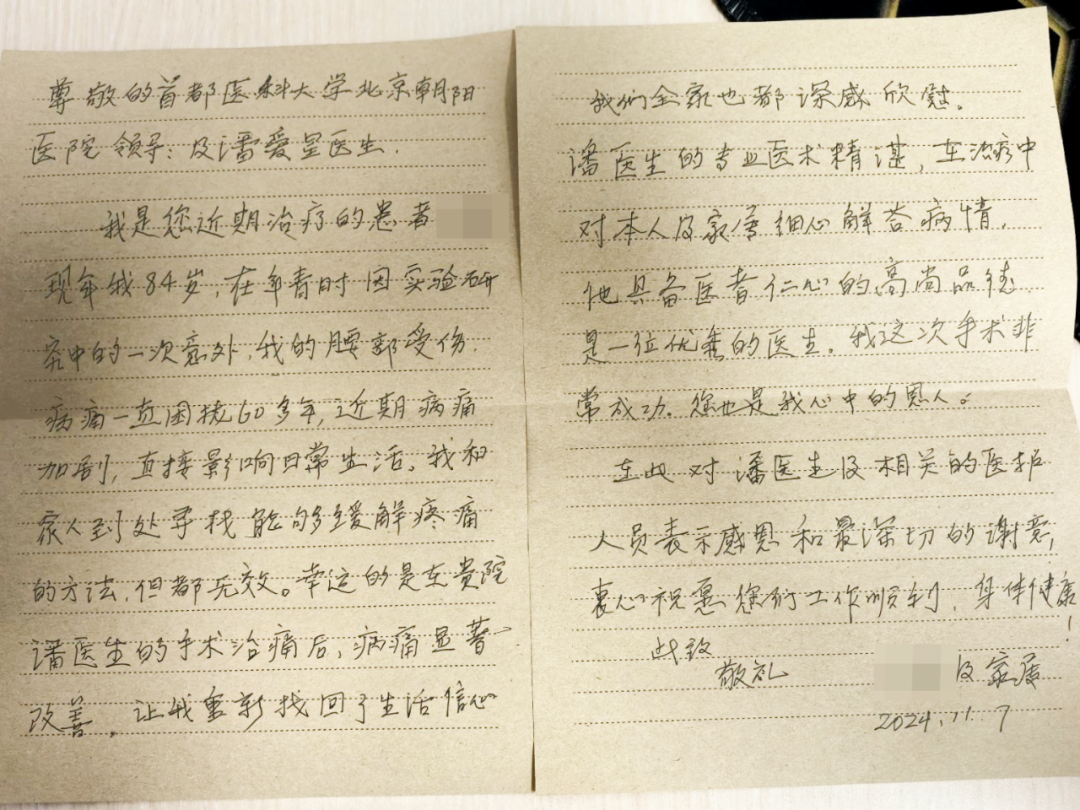 尊敬的首都医科大学北京朝阳
医院领导：及潘爱星医生.
我是您近期治疗的患者
现年我84岁，在年青时因实验研
究中的一次意外，我的腰部受伤.
病痛一直困扰60多年，近期病痛
加剧，直接影响日常生活。我和
家人到处寻找能够缓解疼痛
的方法，但都无效。幸运的是在贵院
潘医生的手术治痛后，病痛显著
改善。让我重新找回了生活信心
我们全家也都深感欣慰.
潘医生的专业医术精湛，在治疗中
对本人及家属细心解答病情.
他具备医者仁心的高尚品德
是一位优秀的医生。我这次手术非
常成功。您也是我心中的恩人。
在此对潘医生及相关的医护
人员表示感恩和最深切的谢意，
衷心祝愿您们工作顺利，身体健康
！
此致
敬礼
及家属
2024.11.7